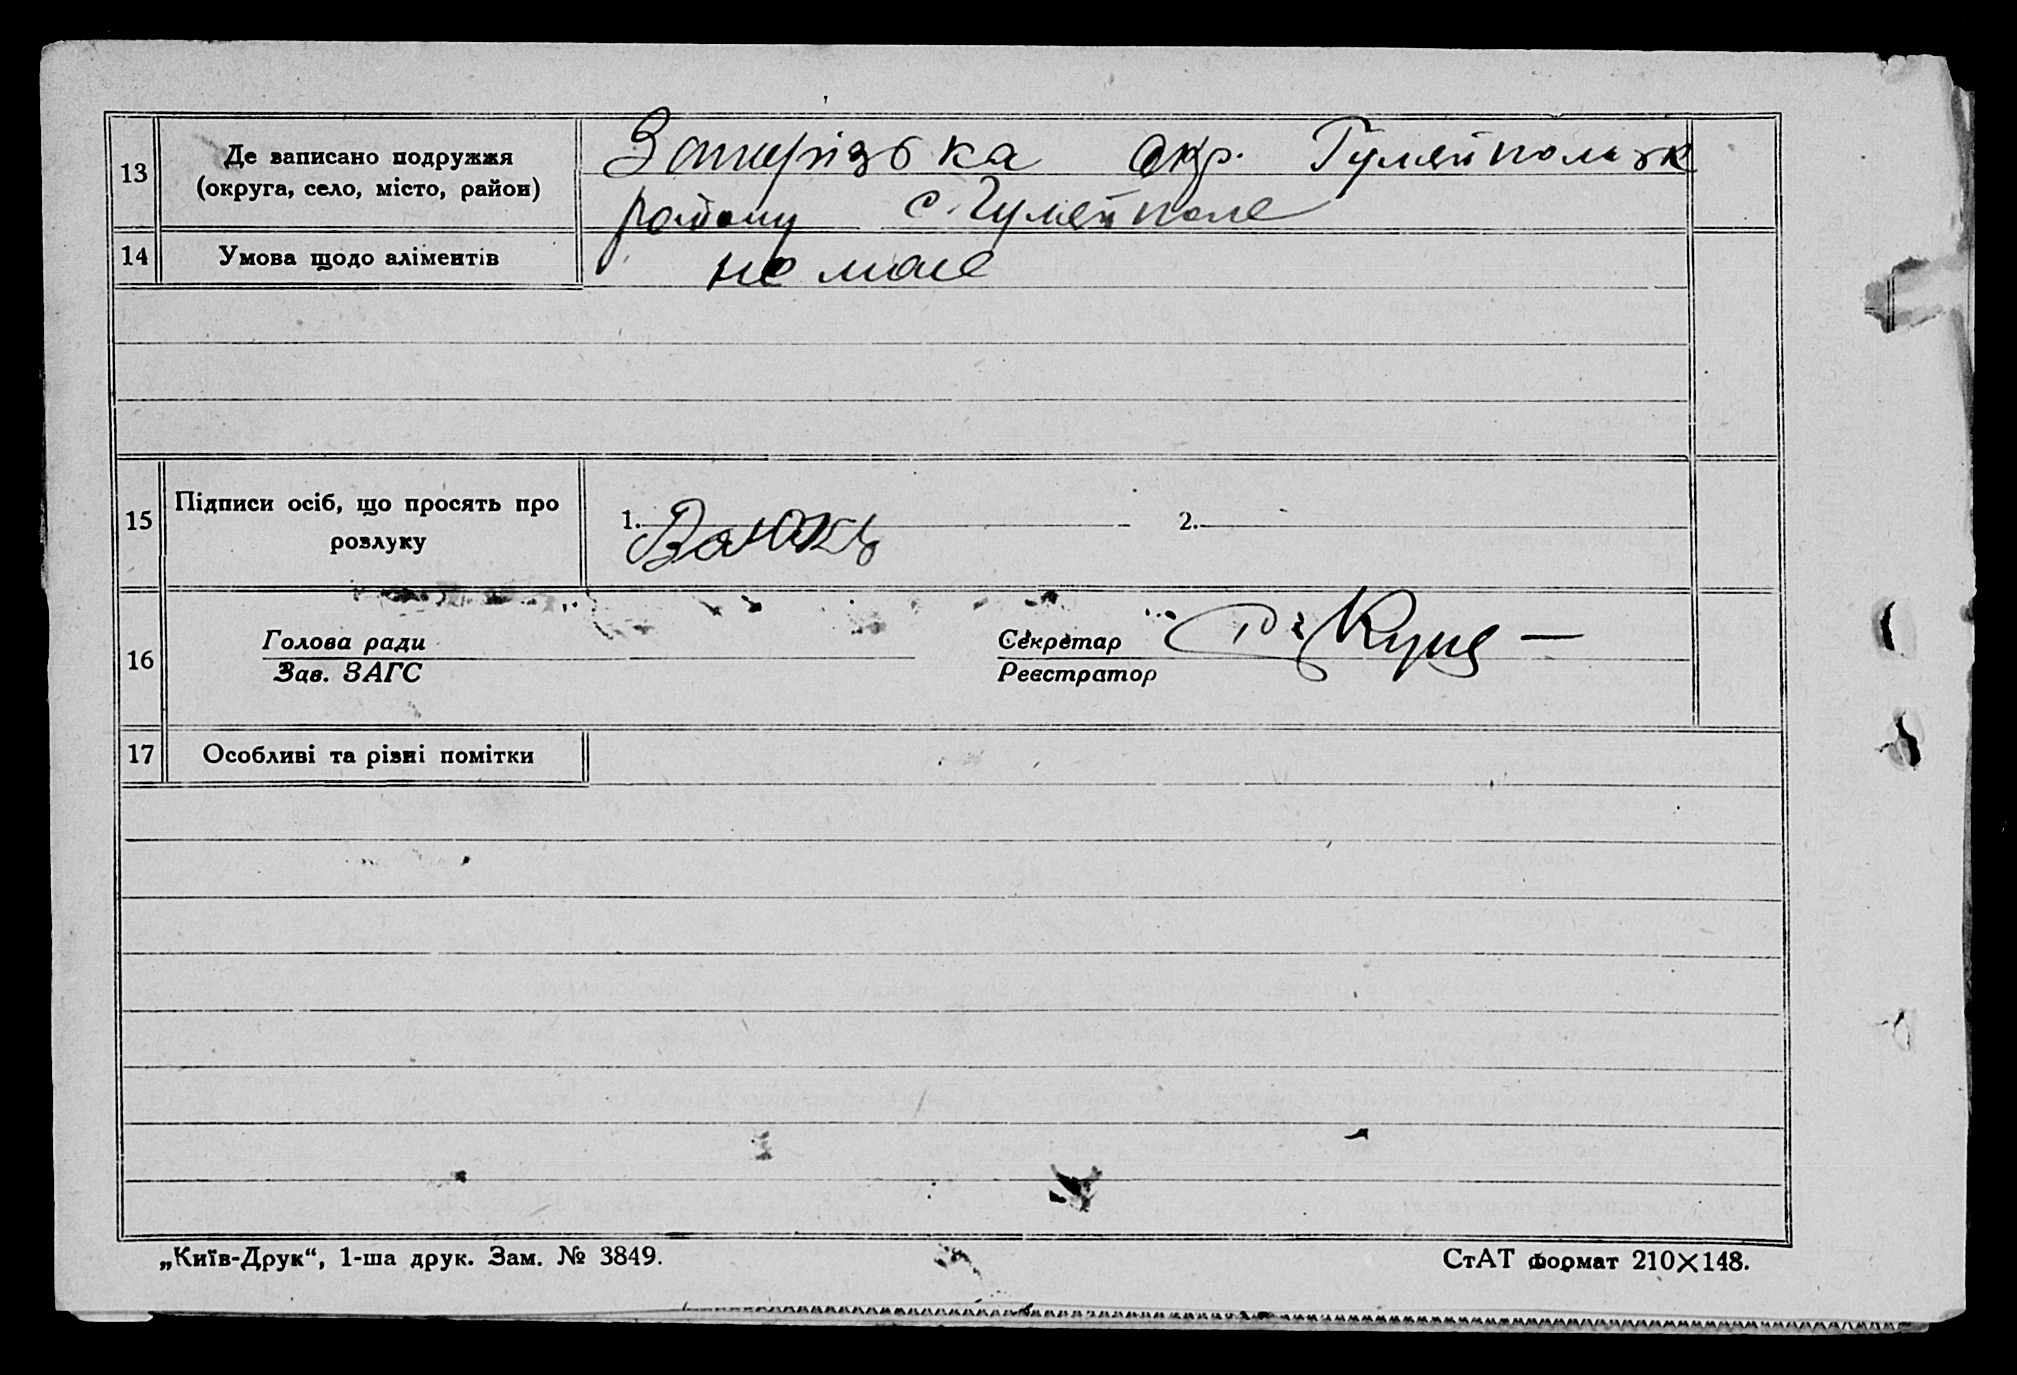 13 Де записано подружжя Запорізька окр. Гуляйпольськ
(округа, село, місто, район) району с. Гуляйполе
14 Умова щодо аліментів не має
15 Підписи осіб, що просять про 1. 2.
розлуку
16 Голова ради Секретар
Зав. ЗАГС Реєстратор
17 Особливі та різні помітки
„Київ-Друк“, 1-ша друк. Зам. № 3849. СтАТ формат 210×148.